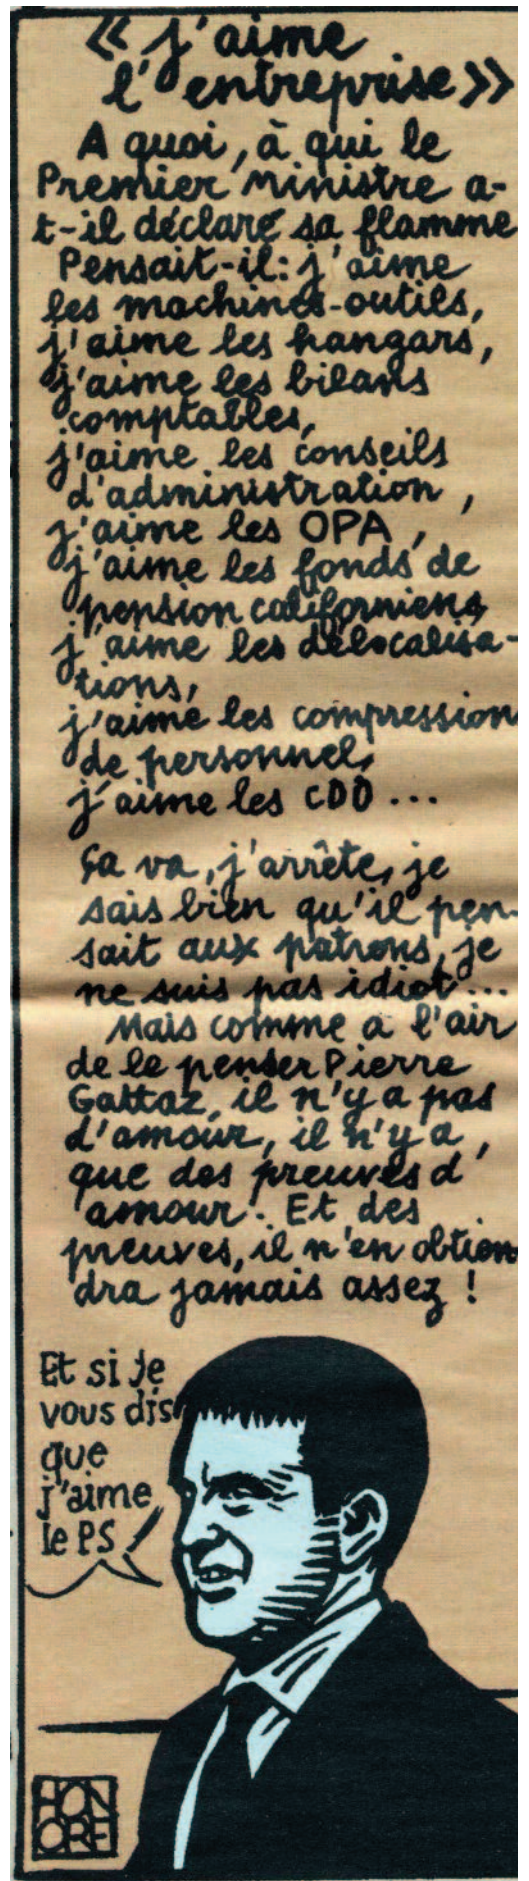 « j'aime
l'entreprise »
A quoi, à qui le
Premier ministre a-
t-il déclaré sa flamme
Pensait-il: j'aime
les machines-outils,
j'aime les hangars,
j'aime les bilans
comptables,
j'aime les conseils
d'administration,
j'aime les OPA,
j'aime les fonds de
pension californiens,
j'aime les délocalisa-
tions,
j'aime les compression
de personnel,
j'aime les CDD...
Ça va, j'arrête, je
sais bien qu'il pen-
sait aux patrons, je
ne suis pas idiot...
Mais comme a l'air
de le penser Pierre
Gattaz, il n'y a pas
d'amour, il n'y a
que des preuves d'
amour. Et des
preuves, il n'en obtien
dra jamais assez !
Et si je
vous dis
que
j'aime
le PS
HON
ORÉ